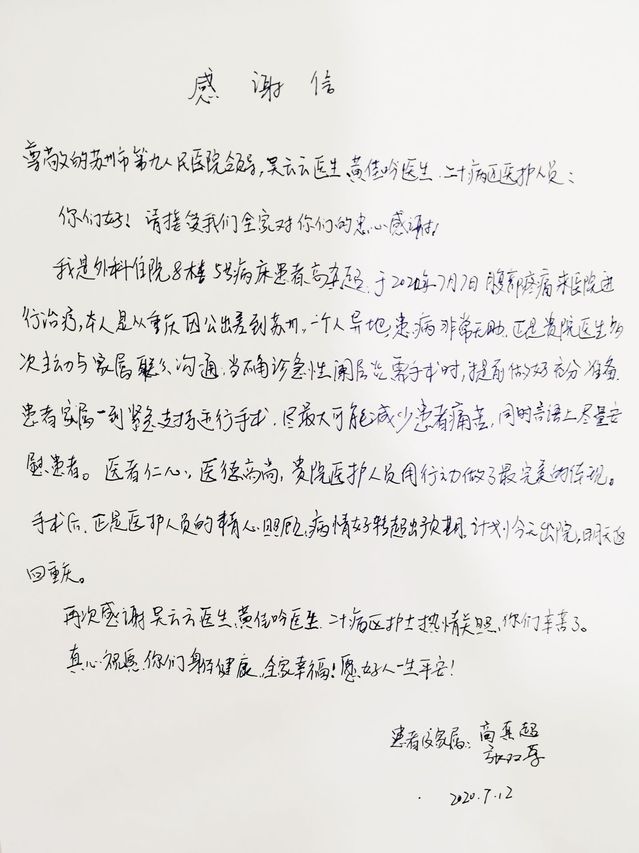 感谢信
尊敬的苏州市第九人民医院领导,吴云云医生、黄佳吟医生、二十病区医护人员:
你们好!请接受我们全家对你们的忠心感谢!
我是外科住院8楼5号病床患者高 超,于2020年7月7日腹部疼痛来医院进
行治疗,本人是从重庆因公出差到苏州,一个人异地患病非常无助,正是贵院医生多
次主动与家属联系沟通,当确诊急性阑尾炎需手术时,提前做好充分准备,
患者家属一到紧急支持进行手术,尽最大可能减少患者痛苦,同时言语上尽量安
慰患者。医者仁心,医德高尚,贵院医护人员用行动做了最完美的体现。
手术后,正是医护人员的精心照顾,病情好转超出预期,计划今天出院,明天返
回重庆。
再次感谢吴云云医生、黄佳吟医生、二十病区护士热情关照,你们辛苦了。
真心祝愿你们身体健康,全家幸福!愿好人一生平安!
患者及家属:高 超
2020.7.12